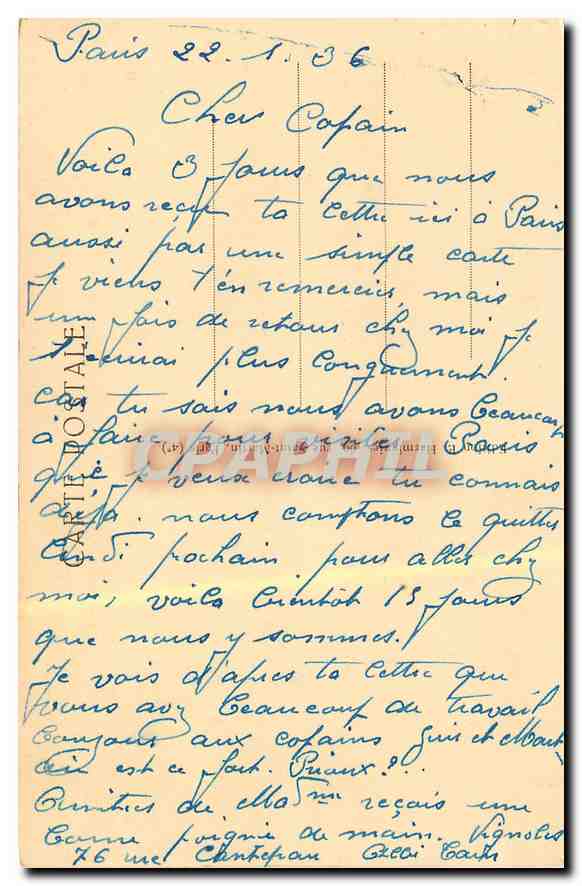 Paris 22.1.36
Cher Copain
Voila 3 jours que nous
avons reçu ta lettre ici à Paris
aussi par une simple carte
je viens t'en remercier, mais
une fois de retour chez moi je
t'ecrirai plus longuement.
car tu sais nous avons beaucoup
à faire pour visiter Paris
que je veux croire tu connais
déjà. nous comptons le quitter
Lundi prochain pour aller chez
moi, voila bientôt 15 jours
que nous y sommes.
Je vois d'apres ta lettre que
vous avez beaucoup de travail
Bonjour aux copains et
est ce fort. Prioux?..
Amitiés de Madme reçois une
bonne poignée de main. Vignoles
76 rue Cantepau Albi Tarn
CARTE POSTALE
CPAPHIL